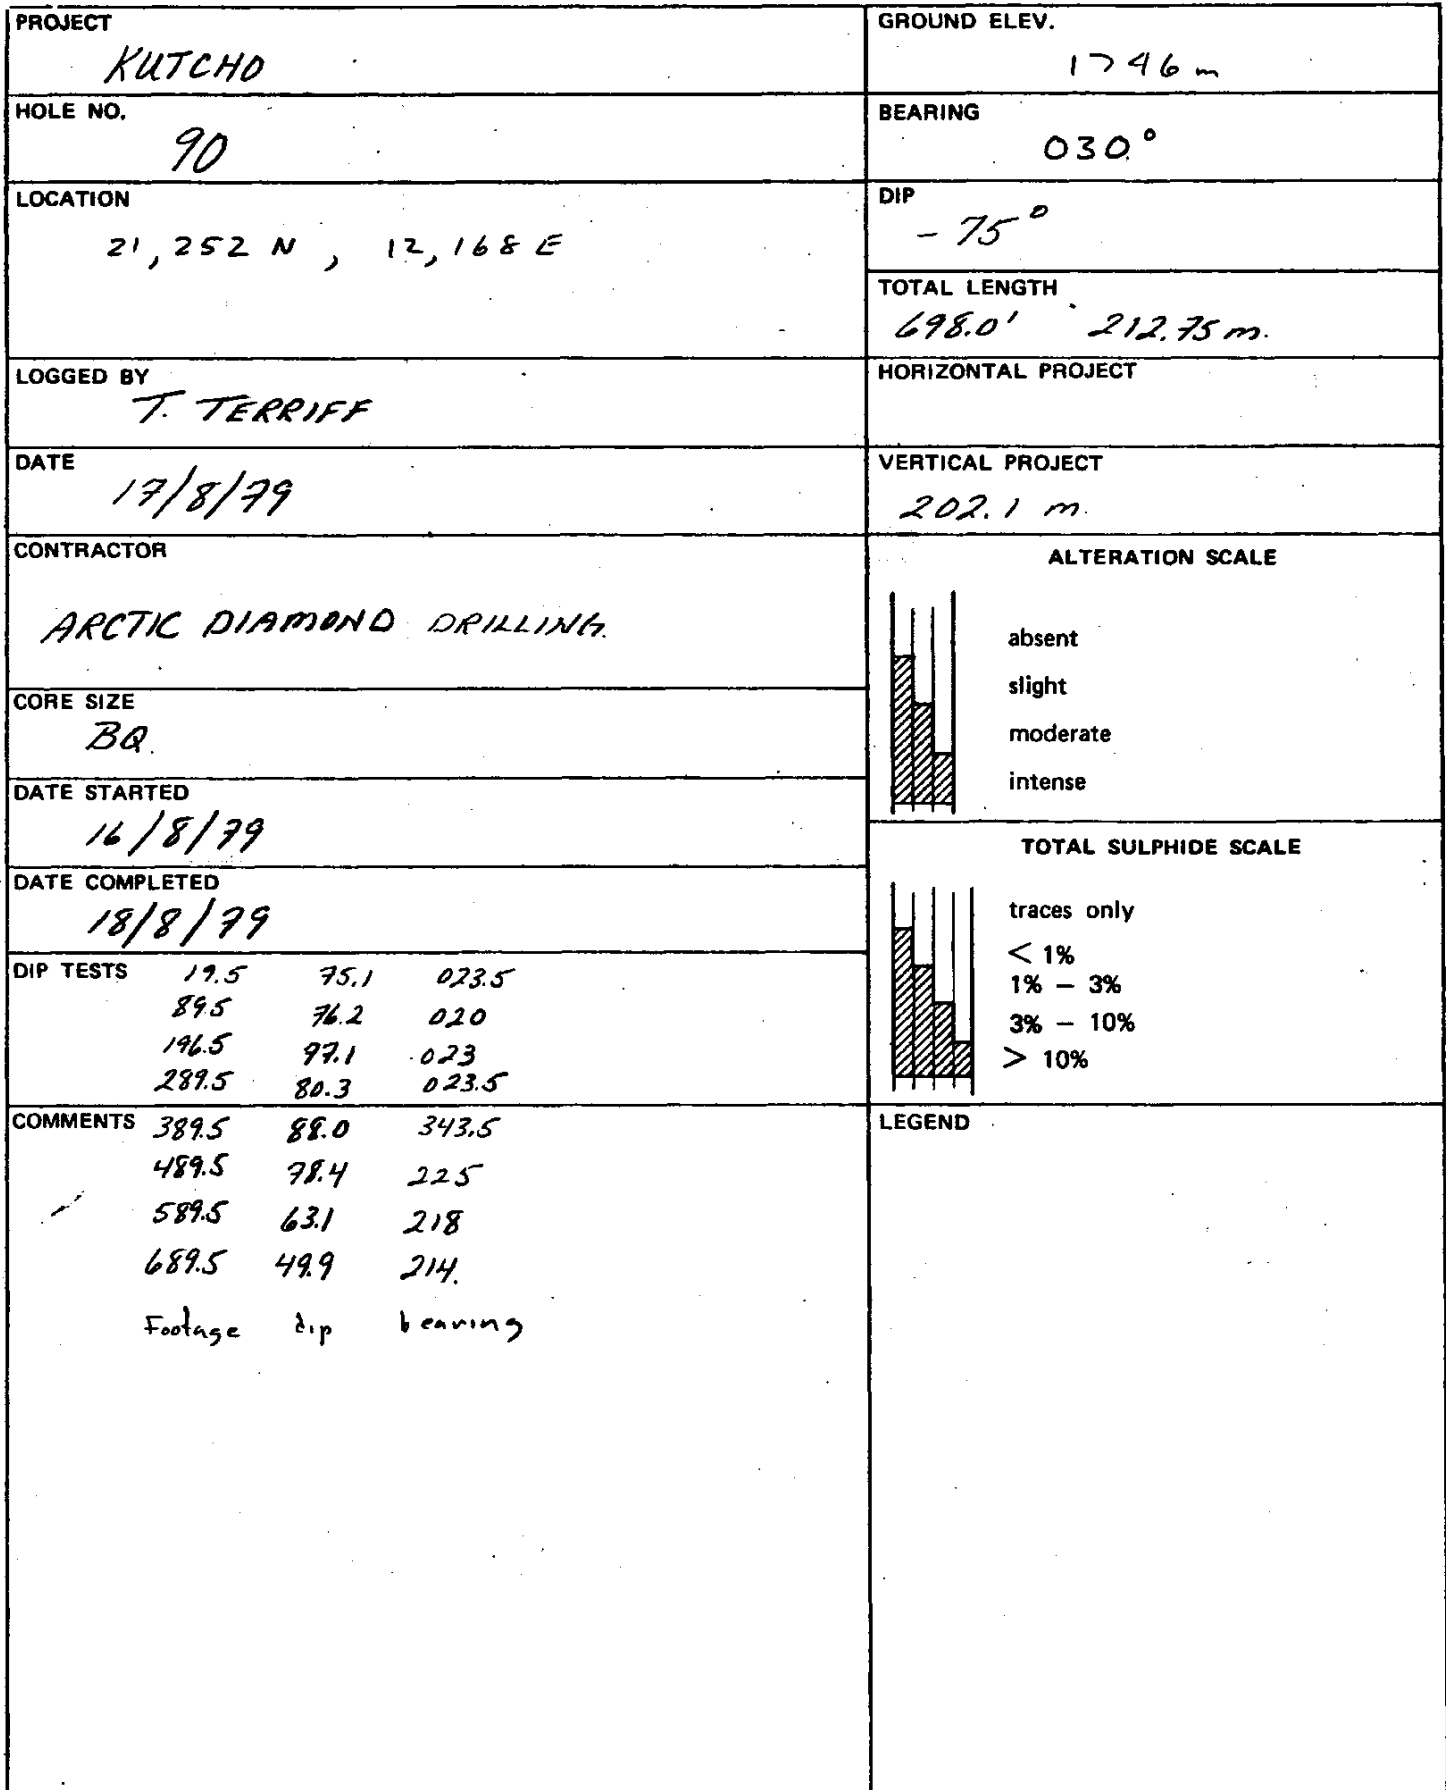 PROJECT
KUTCHO
HOLE NO.
90
LOCATION
21,252 N , 12,168 E
LOGGED BY
T. TERRIFF
DATE
17/8/79
CONTRACTOR
ARCTIC DIAMOND DRILLING.
CORE SIZE
BQ.
DATE STARTED
16/8/79
DATE COMPLETED
18/8/79
DIP TESTS 19.5 75.1 023.5
89.5 76.2 020
196.5 77.1 023
289.5 80.3 023.5
COMMENTS 389.5 88.0 343.5
489.5 78.4 225
589.5 63.1 218
689.5 49.9 214.
Footage dip bearing
GROUND ELEV.
1746 m
BEARING
030.°
DIP
- 75°
TOTAL LENGTH
698.0' 212.75 m.
HORIZONTAL PROJECT
VERTICAL PROJECT
202.1 m.
ALTERATION SCALE
absent
slight
moderate
intense
TOTAL SULPHIDE SCALE
traces only
< 1%
1% – 3%
3% – 10%
> 10%
LEGEND